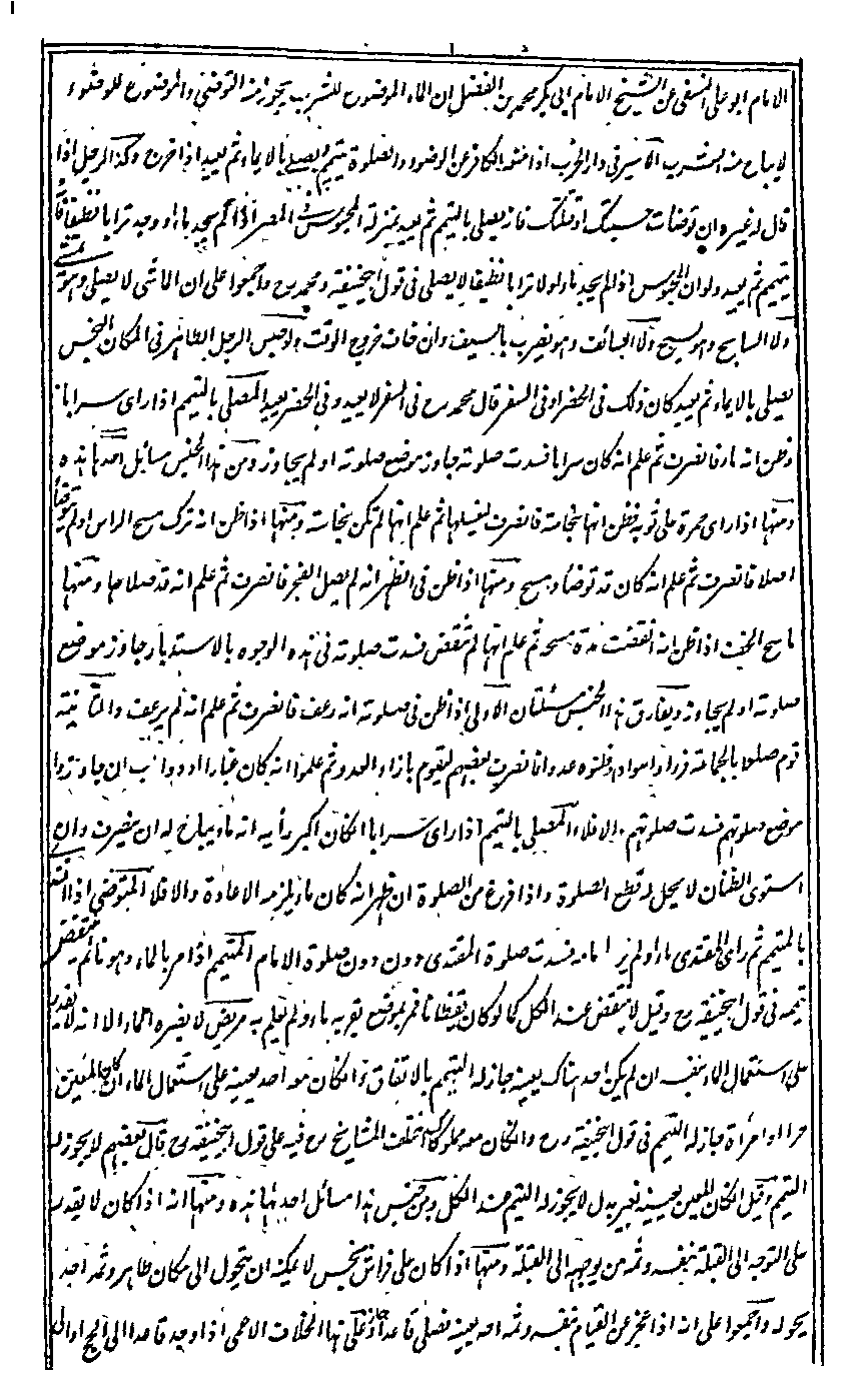 الامام ابو على النسفى عن الشيخ الامام ابى بكر محمد بن الفضل ان الماء الموضوع للشرب يجوز منه التوضئ والموضوع للوضوء
لا يباح منه الشرب الاسير فى دار الحرب اذا منعه الكافر عن الوضوء والصلوة يتيمم ويصلى بالايماء ثم يعيد اذا خرج وكذا الرجل اذا
قال له غيره ان توضات حبستك او قتلتك فانه يصلى بالتيمم ثم يعيد بمنزلة المحبوس فى المصر اذا لم يجد ماء ووجد ترابا نظيفا فانه
يتيمم ثم يعيد ولو ان المحبوس اذا لم يجد ماء ولا ترابا نظيفا لا يصلى فى قول ابيحنيفة ومحمد رح واجمعوا على ان الماشى لا يصلى وهو يمشى
ولا السابح وهو يسبح ولا السائف وهو يضرب بالسيف وان خاف خروج الوقت ولو حبس الرجل الطاهر فى المكان النجس
يصلى بالايماء ثم يعيد كان ذلك فى الحضر او فى السفر قال محمد رح فى السفر لا يعيد وفى الحضر يعيد المصلى بالتيمم اذا راى سرابا
وظن انه ماء فانصرف ثم علم انه كان سرابا فسدت صلوته جاوز موضع صلوته او لم يجاوز ومن هذا الجنس مسائل احدها هذه
ومنها اذا راى حمرة على ثوبه فظن انها نجاسة فانصرف ليغسلها ثم علم انها لم تكن نجاسة ومنها اذا ظن انه ترك مسح الراس او لم يتوضأ
اصلا فانصرف ثم علم انه كان قد توضأ ومسح ومنها اذا ظن فى الظهر انه لم يصل الفجر فانصرف ثم علم انه قد صلاها ومنها
ماسح الخف اذا ظن انه انقضت مدة مسحه ثم علم انها لم تنقض فسدت صلوته فى هذه الوجوه بالاستدبار جاوز موضع
صلوته او لم يجاوز ويفارق هذا الجنس مسئلتان الاولى اذا ظن فى صلوته انه رعف فانصرف ثم علم انه لم يرعف والثانية
قوم صلوا بالجماعة فراوا سوادا وظنوه عدوا فانصرف بعضهم ليقوم بازاء العدو ثم علموا انه كان غبارا او دواب ان جاوزوا
موضع صلوتهم فسدت صلوتهم والا فلا المصلى بالتيمم اذا راى سرابا ان كان اكبر رأيه انه ماء يباح له ان ينصرف وان
استوى الظنان لا يحل له قطع الصلوة واذا فرغ من الصلوة ان ظهر انه كان ماء يلزمه الاعادة والا فلا المتوضى اذا اقتدى
بالمتيمم ثم راى المقتدى ماء ولم ير امامه فسدت صلوة المقتدى دون صلوة الامام المتيمم اذا مر بالماء وهو نائم ينتقض
تيممه فى قول ابيحنيفة رح وقيل لا ينتقض عند الكل كما لو كان يقظانا فمر بموضع بقربه ماء ولم يعلم به مريض لا يضره الماء الا انه لا يقدر
على استعمال الماء بنفسه ان لم يكن احد هناك يعينه جاز له التيمم بالاتفاق وان كان معه احد يعينه على استعمال الماء ان كان المعين
حرا او امرأة جاز له التيمم فى قول ابيحنيفة رح وان كان معه مملوك اختلف المشايخ رح فيه على قول ابيحنيفة رح قال بعضهم لا يجوز له
التيمم وقيل ان كان المعين يعينه بغير بدل لا يجوز له التيمم عند الكل ومن جنس هذا مسائل احدها هذه ومنها انه اذا كان لا يقدر
على التوجه الى القبلة بنفسه وثمه من يوجهه الى القبلة ومنها اذا كان على فراش نجس لا يمكنه ان يتحول الى مكان طاهر وثمه احد
يحوله واجمعوا على انه اذا عجز عن القيام بنفسه وثمه احد يعينه يصلى قاعدا وعلى هذا الخلاف الاعمى اذا وجد قاعدا الى الحج او الى